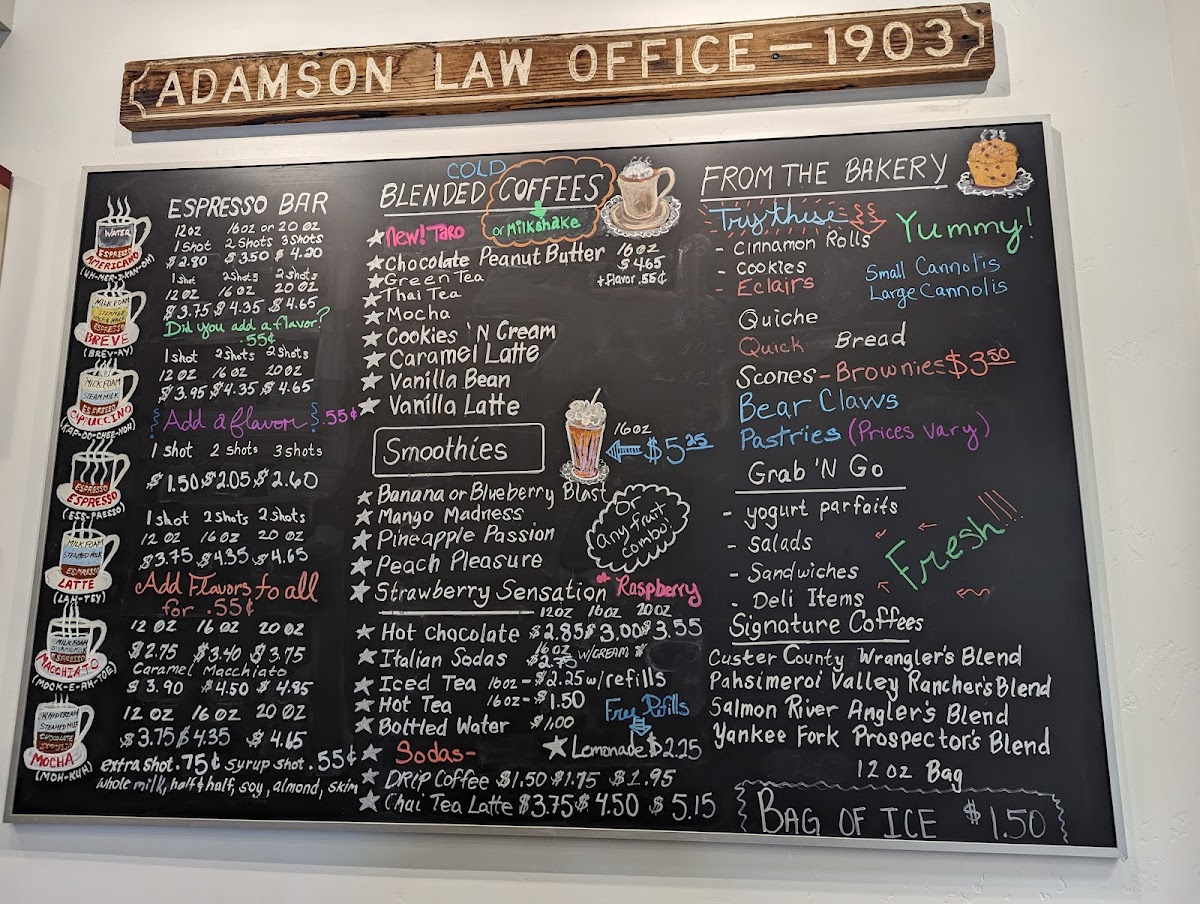 ADAMSON LAW OFFICE — 1903
ESPRESSO BAR
WATER
ESPRESSO
AMERICANO
(UH-MER-I-KAN-OH)
12oz 16oz or 20oz
1 Shot 2 Shots 3 Shots
$2.80 $3.50 $4.20
MILK FOAM
STEAMED
HALF & HALF
ESPRESSO
BREVE
(BREV-AY)
1 shot 2 shots 2 shots
12 oz 16 oz 20 oz
$3.75 $4.35 $4.65
Did you add a flavor?
.55¢
MILK FOAM
STEAM MILK
ESPRESSO
CAPPUCCINO
1 shot 2 shots 2 shots
12 oz 16 oz 20 oz
$3.95 $4.35 $4.65
{Add a flavor} .55¢
ESPRESSO
ESPRESSO
(ESS-PRESSO)
1 shot 2 shots 3 shots
$1.50 $2.05 $2.60
MILK FOAM
STEAMED MILK
ESPRESSO
LATTE
(LAH-TEY)
1 shot 2 shots 2 shots
12 oz 16 oz 20 oz
$3.75 $4.35 $4.65
Add Flavors to all
for .55¢
MILK FOAM
STEAMED MILK
ESPRESSO
MACCHIATO
12 oz 16 oz 20 oz
$2.75 $3.40 $3.75
Caramel Macchiato
$3.90 $4.50 $4.85
WHIP CREAM
STEAMED MILK
CHOCOLATE
ESPRESSO
MOCHA
(MOH-KUH)
12 oz 16 oz 20 oz
$3.75 $4.35 $4.65
extra shot .75¢ syrup shot .55¢
whole milk, half & half, soy, almond, skim
COLD
BLENDED COFFEES
or Milkshake
New! Taro
Chocolate Peanut Butter 16 oz
$4.65
+ flavor .55¢
Green Tea
Thai Tea
Mocha
Cookies 'N Cream
Caramel Latte
Vanilla Bean
Vanilla Latte
Smoothies
16oz
$5.25
Banana or Blueberry Blast
Mango Madness
Pineapple Passion
Peach Pleasure
Strawberry Sensation or Raspberry
or
any fruit
combo!
12 oz 16 oz 20 oz
Hot Chocolate $2.85 $3.00 $3.55
Italian Sodas 16 oz $2.75 w/CREAM
Iced Tea 16 oz - $2.25 w/ refills
Hot Tea 16 oz - $1.50
Bottled Water $1.00
Free Refills
Sodas-
Lemonade $2.25
DRip Coffee $1.50 $1.75 $1.95
Chai Tea Latte $3.75 $4.50 $5.15
FROM THE BAKERY
Try these
Yummy!
- Cinnamon Rolls
- Cookies
- Eclairs
Small Cannolis
Large Cannolis
Quiche
Quick Bread
Scones - Brownies $3.50
Bear Claws
Pastries (Prices vary)
Grab 'N Go
- yogurt parfaits
- Salads
- Sandwiches
- Deli Items
Fresh!!!
Signature Coffees
Custer County Wrangler's Blend
Pahsimeroi Valley Rancher's Blend
Salmon River Angler's Blend
Yankee Fork Prospector's Blend
12 oz Bag
BAG OF ICE $1.50